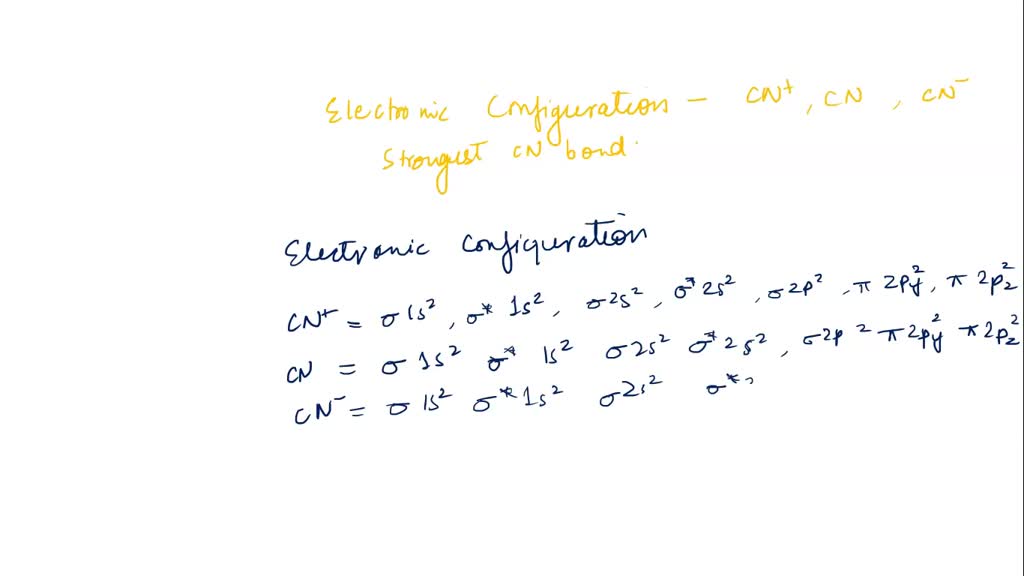 Electronic Configuration - CN⁺, CN, CN⁻
Strongest CN bond.
Electronic Configuration
CN⁺ = σ 1s², σ* 1s², σ2s², σ* 2s², σ2p², π 2py², π 2pz²
CN = σ 1s² σ* 1s² σ2s² σ* 2s², σ2p² π2py² π2pz²
CN⁻ = σ 1s² σ* 1s² σ2s² σ*